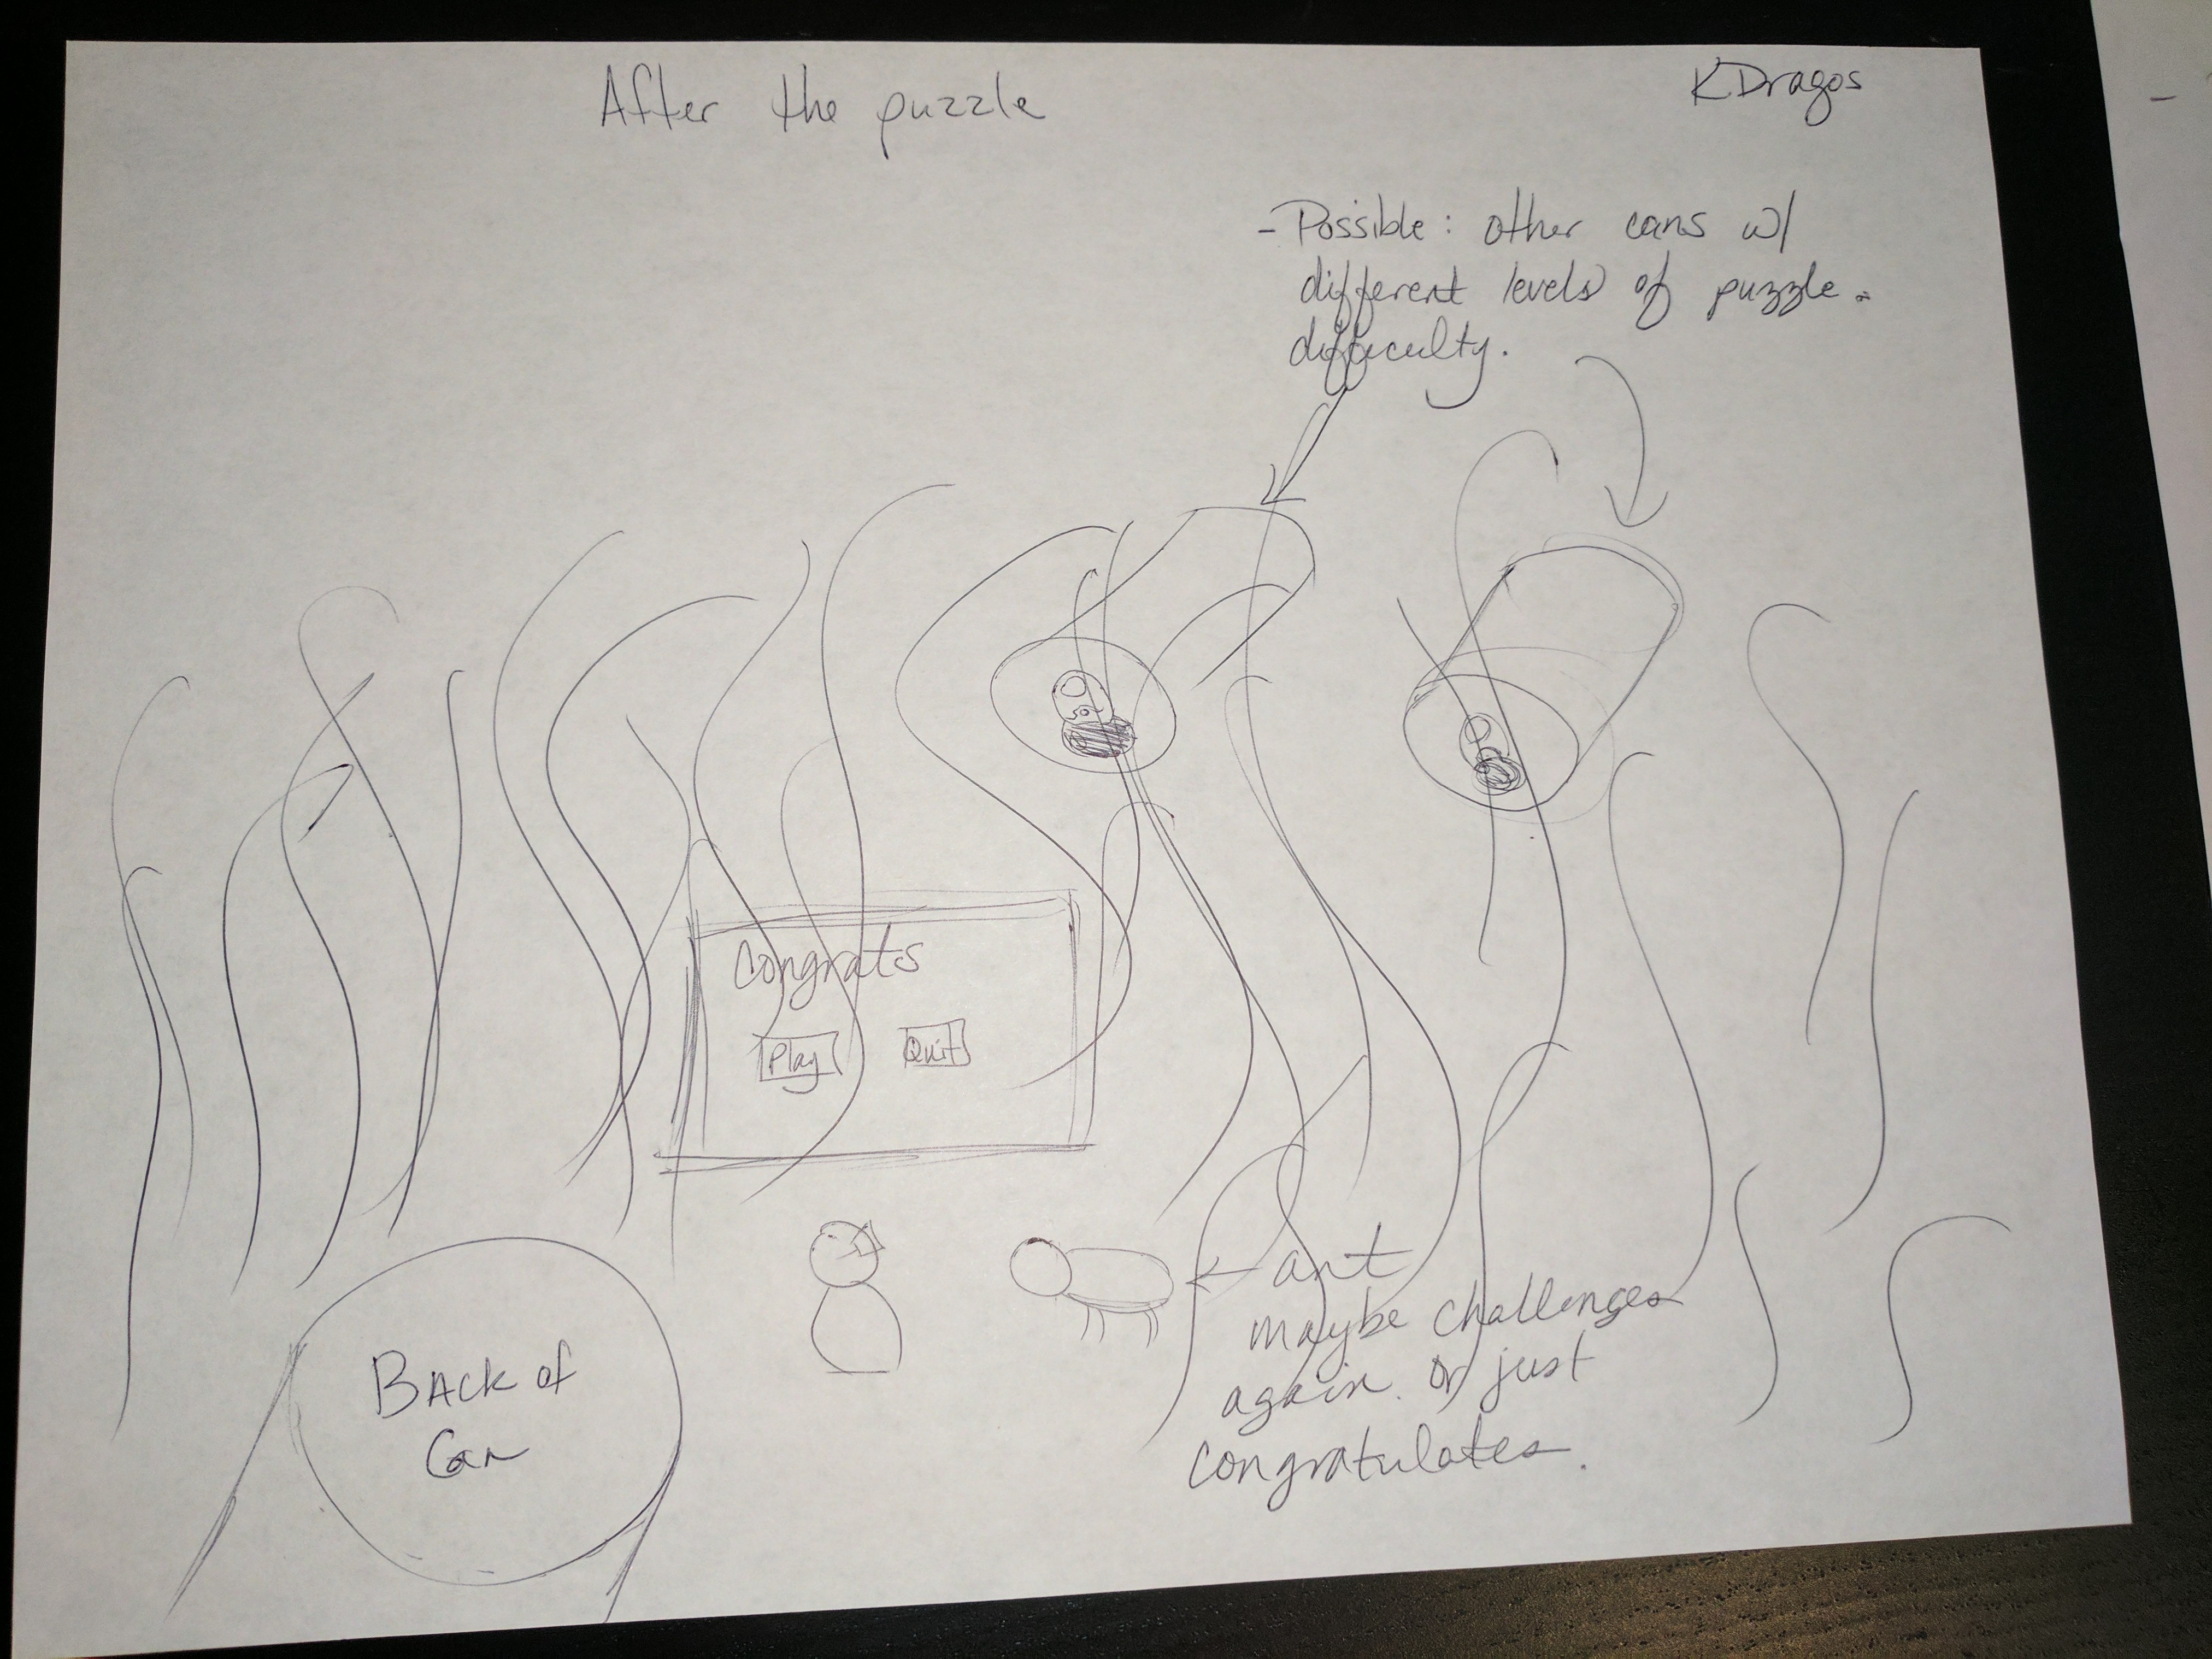 After the puzzle
KDragos
- Possible: other cans w/
different levels of puzzle.
difficulty.
Congrats
Play
Quit
ant
maybe challenges
again. or just
congratulates.
BACK of
Can